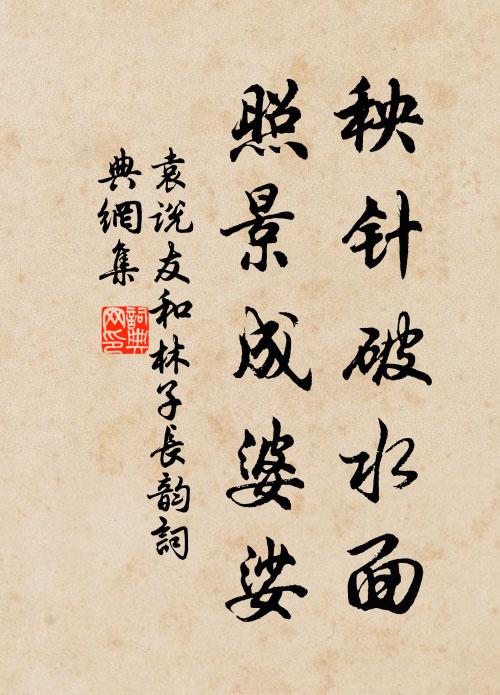 秧针破水面
照景成婆娑
袁说友和林子長韵詞
典網集
詞典网印